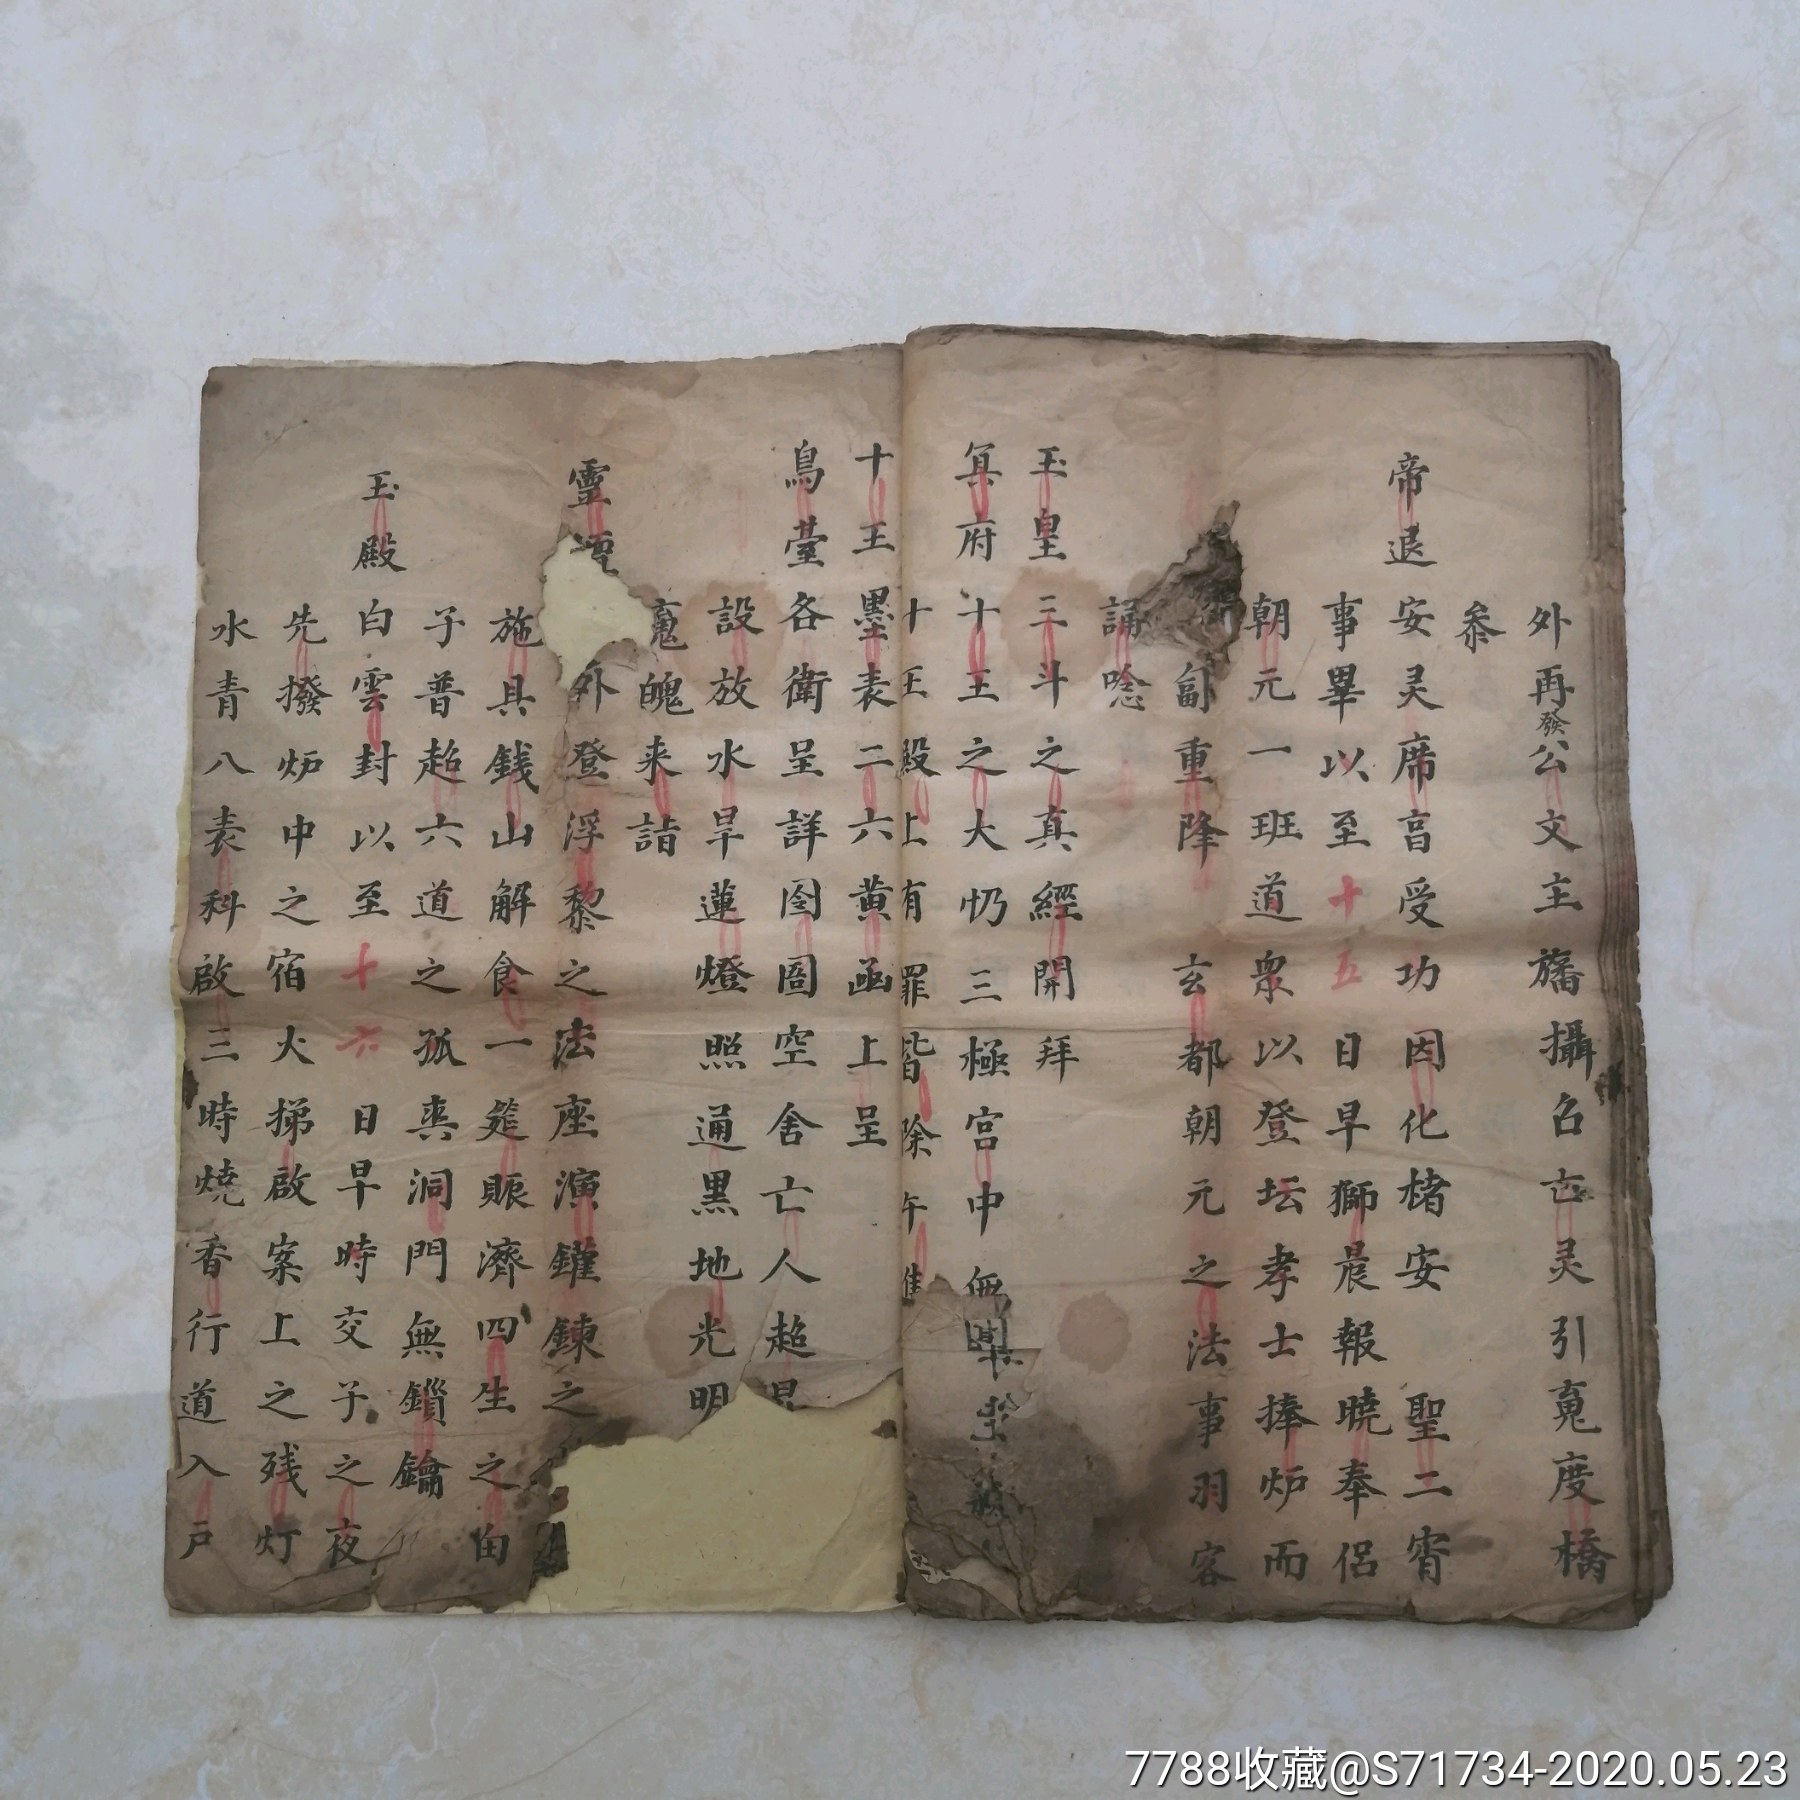 外再發公文主旛攝召亡灵引䰟度橋
叅
帝退安灵席盲受功因化楮安 聖二宵
事畢以至十五日早獅晨報曉奉侣
朝元一班道衆以登坛孝士捧炉而
副重降 玄都朝元之法事羽客
誦唸
玉皇三斗之真經開拜
冥府十王之大忉三極宫中無
十王殿上有罪皆除午
十王墨表二六黄函上呈
鳥臺各衛呈詳囹圄空舍亡人超昇
設放水旱蓮燈照通黑地光明
䰟魄来詣
靈 外登浮黎之法座演鑵鍊之
施具錢山解食一筵賑濟四生之由
子普超六道之孤爽洞門無鎖鑰
玉殿白雲封以至十六日早時交子之夜
先撥炉中之宿火揥啟案上之残灯
水青八表科啟三時燒香行道入户
7788收藏@S71734-2020.05.23